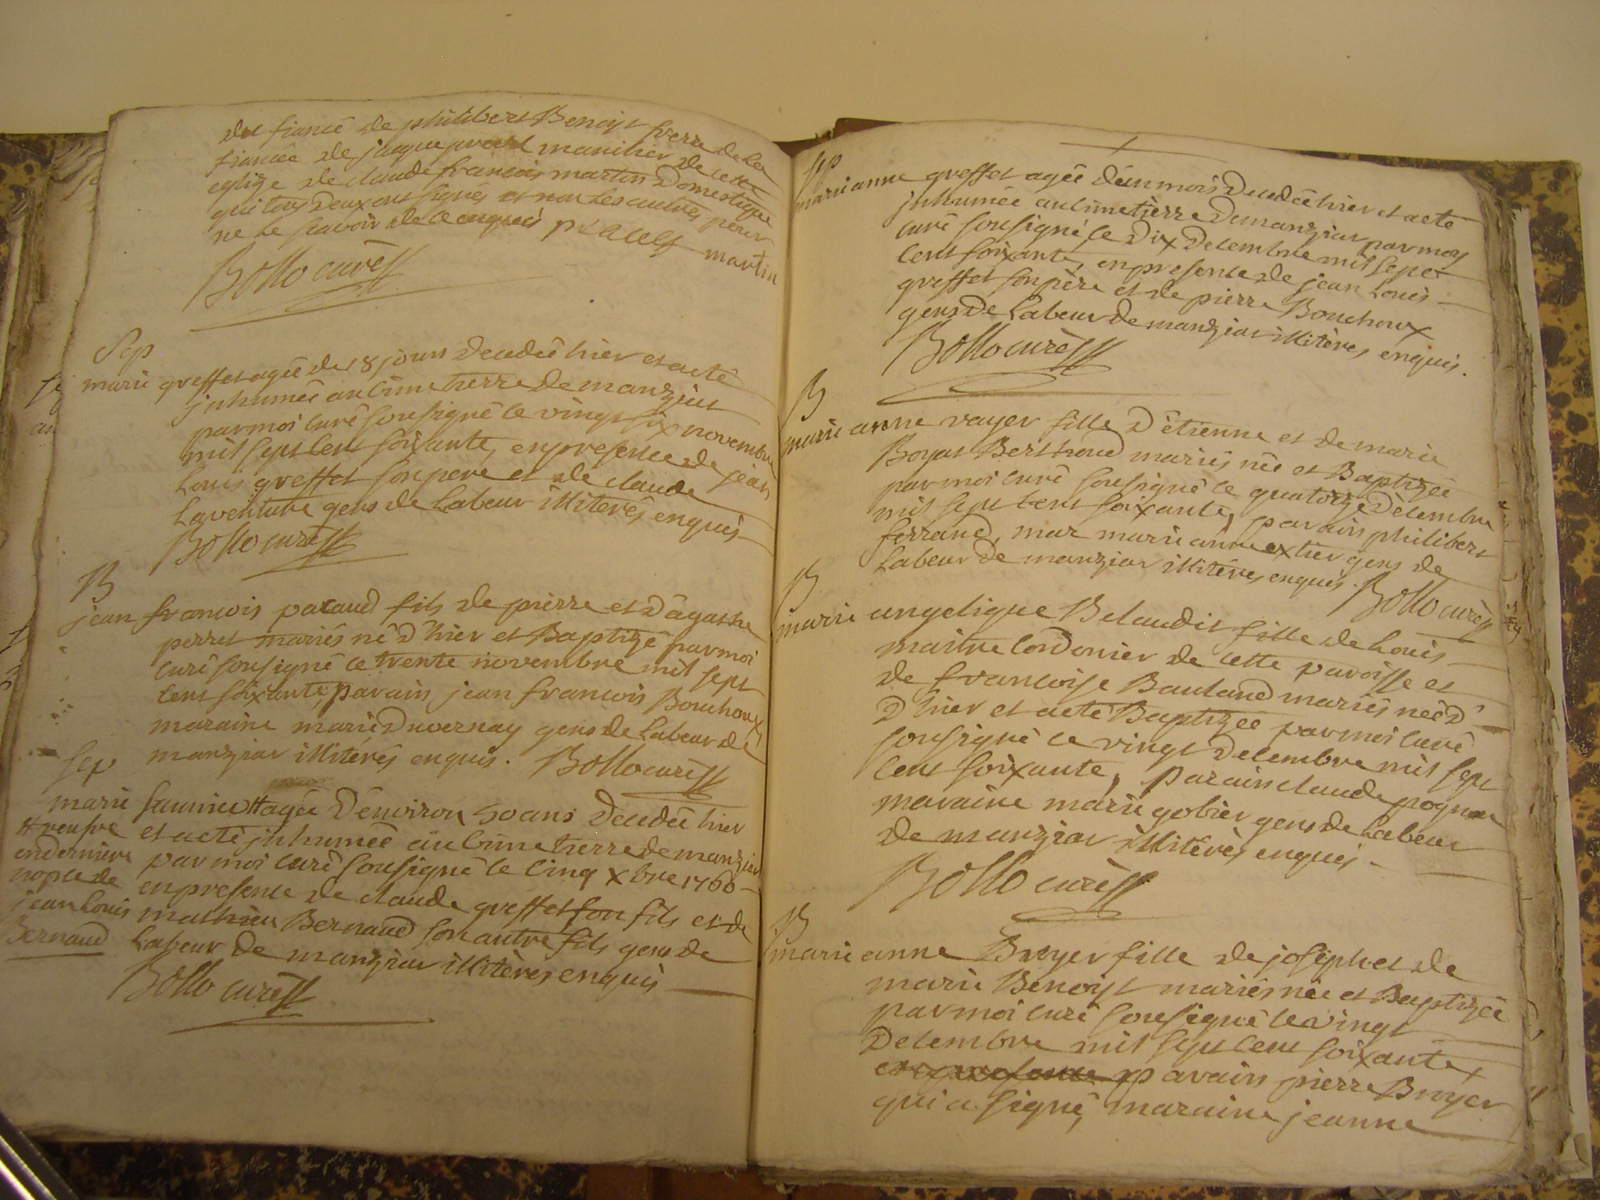 dit fiancé de philibert Benoist frere de la
fiancée de jaque pracel manilier de cette
eglize de claude francois martin Domestique
qui tous deux ont signés et non les autres pour
ne le scavoir de ce enquis pracel martin
Bollo curé
Sep
marie greffet agée de 18 jours decedée hier et a eté
inhumée au cimetierre de manziat
par moi curé sousigné le vingt six novembre
mil sept cent soixante, en presence de jean
Louis greffet son pere et de claude
Laventure gens de Labeur illiterés enquis
Bollo curé
B
jean francois pacaud fils de pierre et d'agathe
perret mariés né d'hier et Baptizé par moi
curé sousigné le trente novembre mil sept
cent soixante, parain jean francois Bouchoux
maraine marie Duvernay gens de Labeur de
manziat illiterés enquis. Bollo curé
Sep
marie saunier agée d'environ 50 ans decedée hier
et a eté inhumée au cimetierre de manziat
par moi curé sousigné le cinq xbre 1760
en presence de claude greffet son fils et de
mathieu Bernaud son autre fils gens de
Labeur de manziat illiterés enquis
veufve
en derniere
nopce de
jean Louis
Bernaud
Bollo curé
Sep
marie anne greffet agée d'un mois decedée hier et a eté
inhumée au cimetierre de manziat par moy
curé sousigné le dix decembre mil sept
cent soixante, en presence de jean Louis
greffet son père et de pierre Bouchoux
gens de Labeur de manziat illiterés enquis.
Bollo curé
B
marie anne rayer fille d'étienne et de marie
Boyat Berthoud mariés née et Baptizée
par moi curé sousigné le quatorze decembre
mil sept cent soixante, parain philibert
ferrand, mar marie anne extier gens de
Labeur de manziat illiterés enquis. Bollo curé
B
marie angelique Belaudit fille de Louis
maitre Cordonier de cette paroisse et
de francoise Bauland mariés née d'
d'hier et a eté Baptizée par moi curé
sousigné le vingt decembre mil sept
cent soixante, parain claude pognar
maraine marie gobier gens de Labeur
de manziat illiterés enquis
Bollo curé
B
marie anne Broyer fille de joseph et de
marie Benoist mariés née et Baptizée
par moi curé sousigné le vingt
decembre mil sept cent soixante
en presence parain pierre Broyer
qui a signé, maraine jeanne